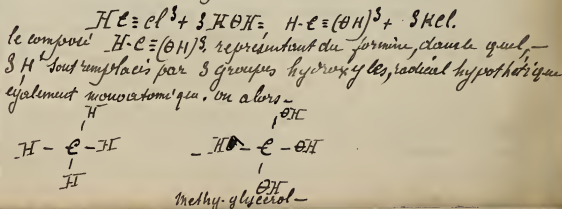 HC≡Cl³ + 3KΘH = H-C≡(ΘH)³ + 3KCl.
le composé H-C≡(ΘH)³. représentant du formène, dans le quel, —
3 H' sont remplacés par 3 groupes hydroxyles, radical hypothétique
également monoatomique. on alors —
H ΘH
H — C — H — HΘ — C — ΘH
H ΘH
Methy-glycérol —